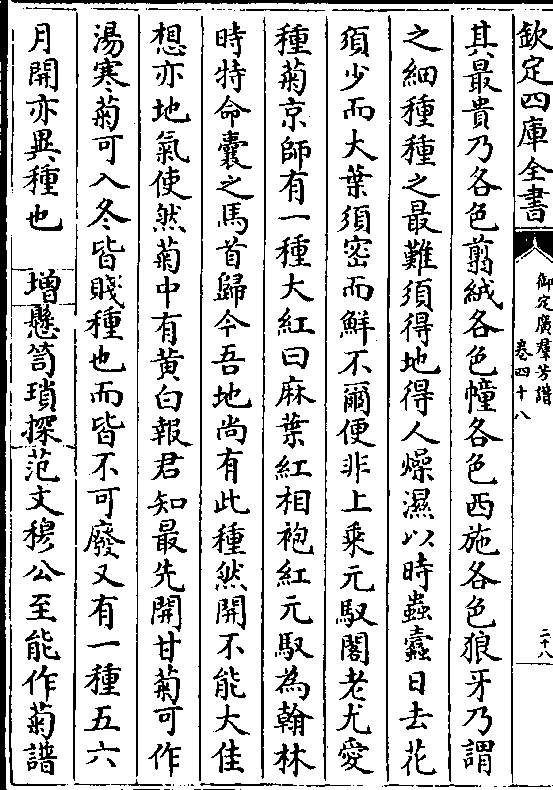 欽定四庫全書
御定廣羣芳譜
卷四十八
二十八
其最貴乃各色剪絨各色幢各色西施各色狼牙乃謂
之細種種之最難須得地得人燥濕以時蟲蠹日去花
須少而大葉須密而鮮不爾便非上乘元馭閣老尤愛
種菊京師有一種大紅曰麻葉紅相袍紅元馭為翰林
時特命囊之馬首歸今吾地尚有此種然開不能大佳
想亦地氣使然菊中有黄白報君知最先開甘菊可作
湯寒菊可入冬皆賤種也而皆不可廢又有一種五六
月開亦異種也 增懸笥瑣探范文穆公至能作菊譜